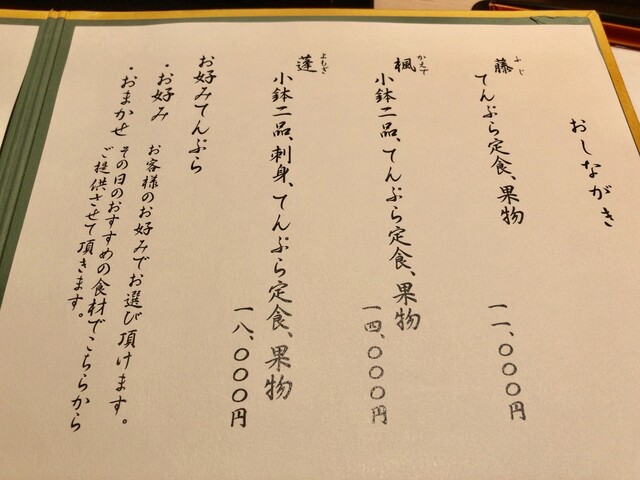 おしながき
藤 ふじ
てんぷら定食、果物
一一、〇〇〇円
楓 かえで
小鉢二品、てんぷら定食、果物
一四、〇〇〇円
蓬 よもぎ
小鉢二品、刺身、てんぷら定食、果物
一八、〇〇〇円
お好みてんぷら
・お好み お客様のお好みでお選び頂けます。
・おまかせ その日のおすすめの食材でこちらから
ご提供させて頂きます。